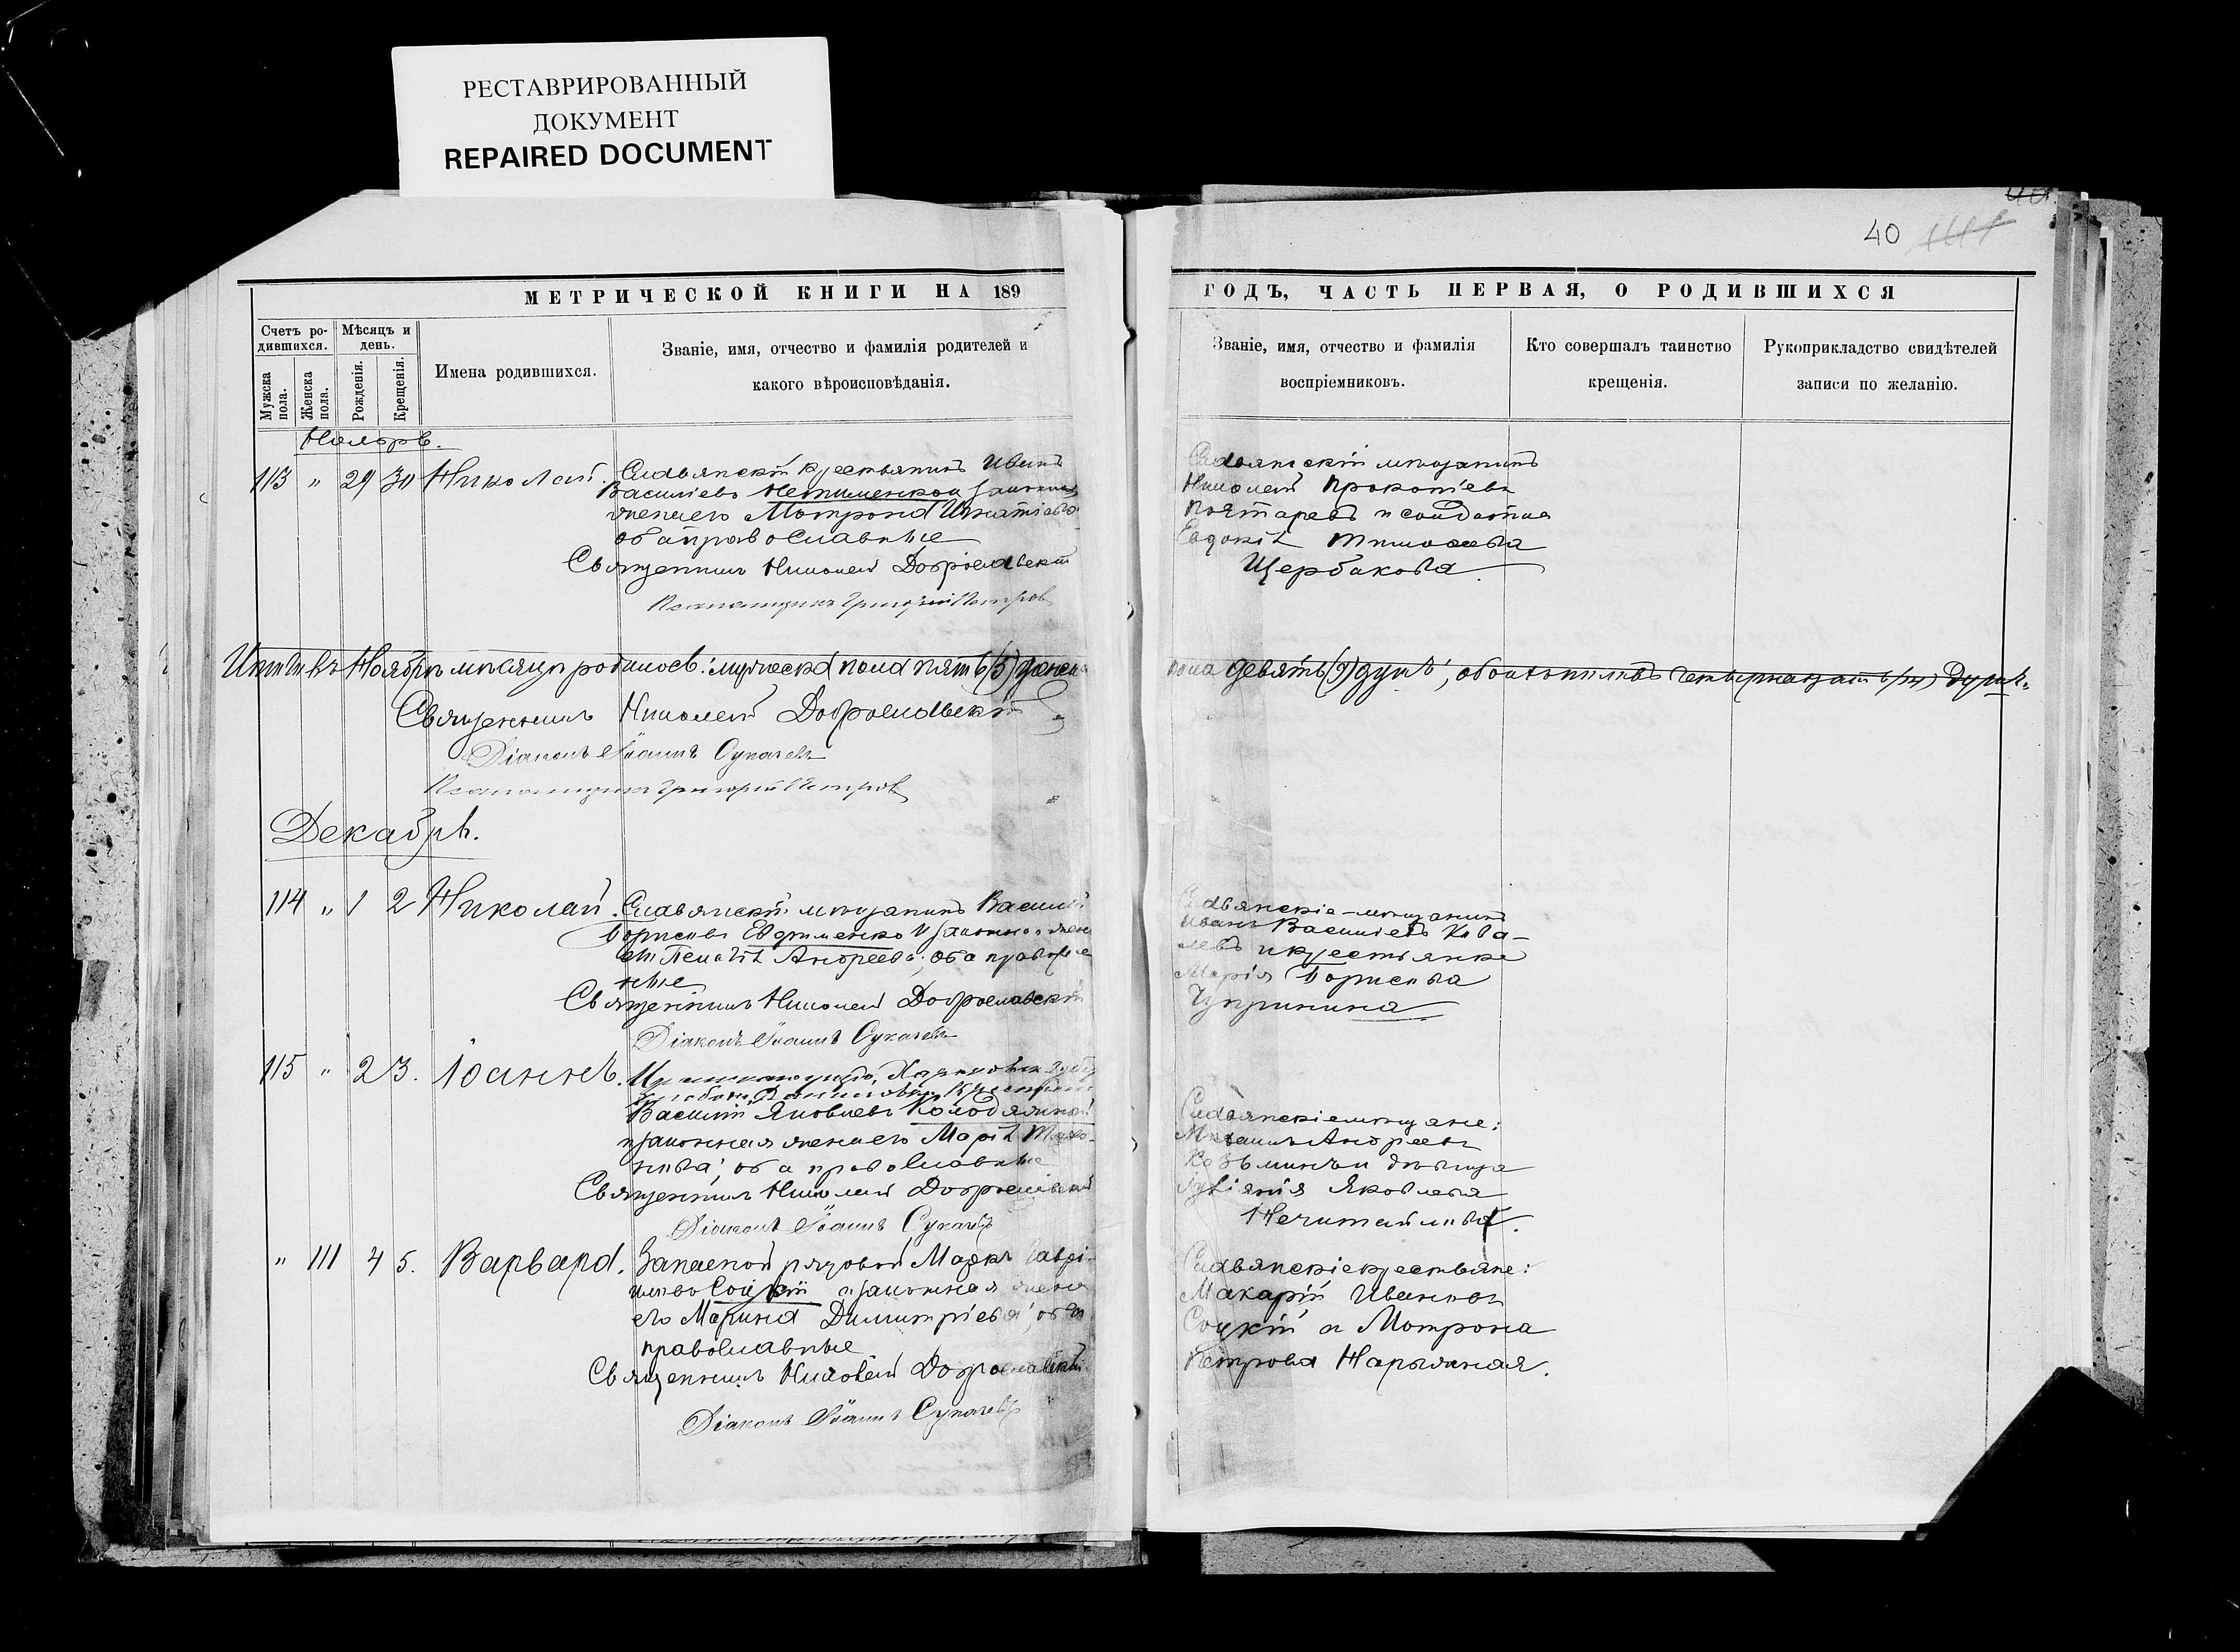 РЕСТАВРИРОВАННЫЙ
ДОКУМЕНТ
REPAIRED DOCUMENT
40
МЕТРИЧЕСКОЙ КНИГИ НА 189
ГОДЪ, ЧАСТЬ ПЕРВАЯ, О РОДИВШИХСЯ
Счетъ ро-
дившихся.
Мѣсяцъ и
день.
Мужска
пола.
Женска
пола.
Рожденія.
Крещенія.
Имена родившихся.
Званіе, имя, отчество и фамилія родителей и
какого вѣроисповѣданія.
Званіе, имя, отчество и фамилія
воспріемниковъ.
Кто совершалъ таинство
крещенія.
Рукоприкладство свидѣтелей
записи по желанію.
Ноябрь.
113 " 29 30 Николай.
Славянскій крестьянинъ Иванъ
Василіевъ
жена его Матрона Игнатіева
оба православные
Священникъ Николай Доброславскій
Псаломщикъ Григорій Петровъ
Славянскій мѣщанинъ
Николай Прокопіевъ
и солдатка
Евдокія
Щербакова
Итого въ Ноябрѣ мѣсяцѣ родилось: мужеска пола пять (5) женска
пола девять (9) душъ, обоихъ половъ четырнадцать (14) душъ.
Священникъ Николай Доброславскій
Діаконъ Іоаннъ Сукачевъ
Псаломщикъ Григорій Петровъ
Декабрь.
114 " 1 2 Николай.
Славянскій мѣщанинъ Василій
Борисовъ Евфименко и законная жена
его Пелагія Андреева; оба православ
ные
Священникъ Николай Доброславскій
Діаконъ Іоаннъ Сукачевъ
Славянскіе мѣщанинъ
Иванъ Василіевъ Кова-
левъ и крестьянка
Марія Борисова
Чупринина
115 " 2 3. Іоаннъ.
Василій Яковлевъ Колодяжный
и законная жена его Марія
оба православные
Священникъ Николай Доброславскій
Діаконъ Іоаннъ Сукачевъ
Славянскіе мѣщане:
Михаилъ Андреевъ
Козьминъ и дѣвица
Яковлева
Нечитайлова.
" 111 4 5. Варвара.
Запасной рядовой Маркъ Гаврі-
иловъ Соцкій и законная жена
его Марина Димитріева; оба
православные
Священникъ Николай Доброславскій
Діаконъ Іоаннъ Сукачевъ
Славянскіе крестьяне:
Макарій Ивановъ
Соцкій и Матрона
Петрова Нарыжная.